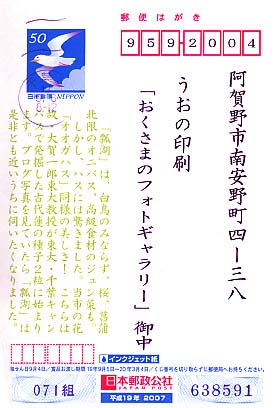 郵便はがき
959-2004
50
日本郵便
NIPPON
阿賀野市南安野町四ー三八
うおの印刷
「おくさまのフォトギャラリー」御中
「瓢湖」は、白鳥のみならず、桜、菖蒲
北限のオニバス、高級食材のジュンさいも。
しかし、ハスには驚きました。当市の花
「オオガハス」同様の美しさ！こちらは
故、大賀一郎東大教授が東大・千葉キャン
パスで発掘した古代蓮の種子２粒に始まり
ます。ブログ写真を見ていたら「瓢湖」は
是非とも近いうちに伺いたくなりました。
インクジェット紙
071組
日本郵政公社
JAPAN POST
平成19年 2007
638591